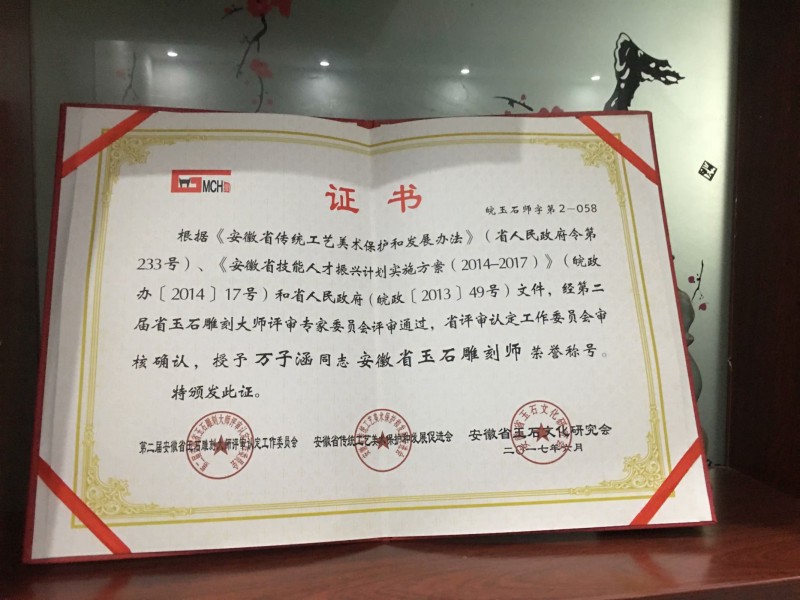 MCH
证书
皖玉石师字第2-058
根据《安徽省传统工艺美术保护和发展办法》(省人民政府令第
233号)、《安徽省技能人才振兴计划实施方案(2014-2017)》(皖政
办〔2014〕17号)和省人民政府(皖政〔2013〕49号)文件,经第二
届省玉石雕刻大师评审专家委员会评审通过,省评审认定工作委员会审
核确认,授予万子涵同志安徽省玉石雕刻师荣誉称号。
特颁发此证。
第二届安徽省玉石雕刻大师评审认定工作委员会
安徽省传统工艺美术保护和发展促进会
安徽省玉石文化研究会
二〇一七年六月